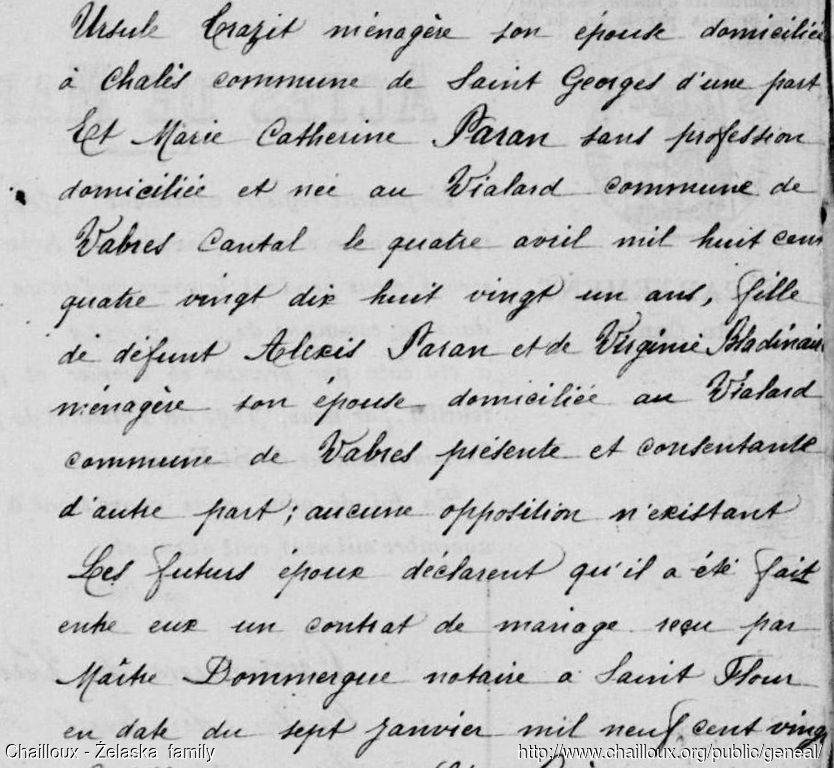 Ursule Crazit ménagère son epouse domiciliée
à Chalès commune de Saint Georges d'une part
Et Marie Catherine Paran sans profession
domiciliée et née au Vialard commune de
Vabres Cantal le quatre avril mil huit cent
quatre vingt dix huit vingt un ans, fille
de défunt Alexis Paran et de Virginie
ménagère son épouse domiciliée au Vialard
commune de Vabres présente et consentante
d'autre part; aucune opposition n'existant
Les futurs epoux declarent qu'il a été fait
entre eux un contrat de mariage reçu par
Maître Dommergue notaire a Saint Flour
en date du sept janvier mil neuf cent vingt
Chailloux - Želaska family
http://www.chailloux.org/public/geneal/